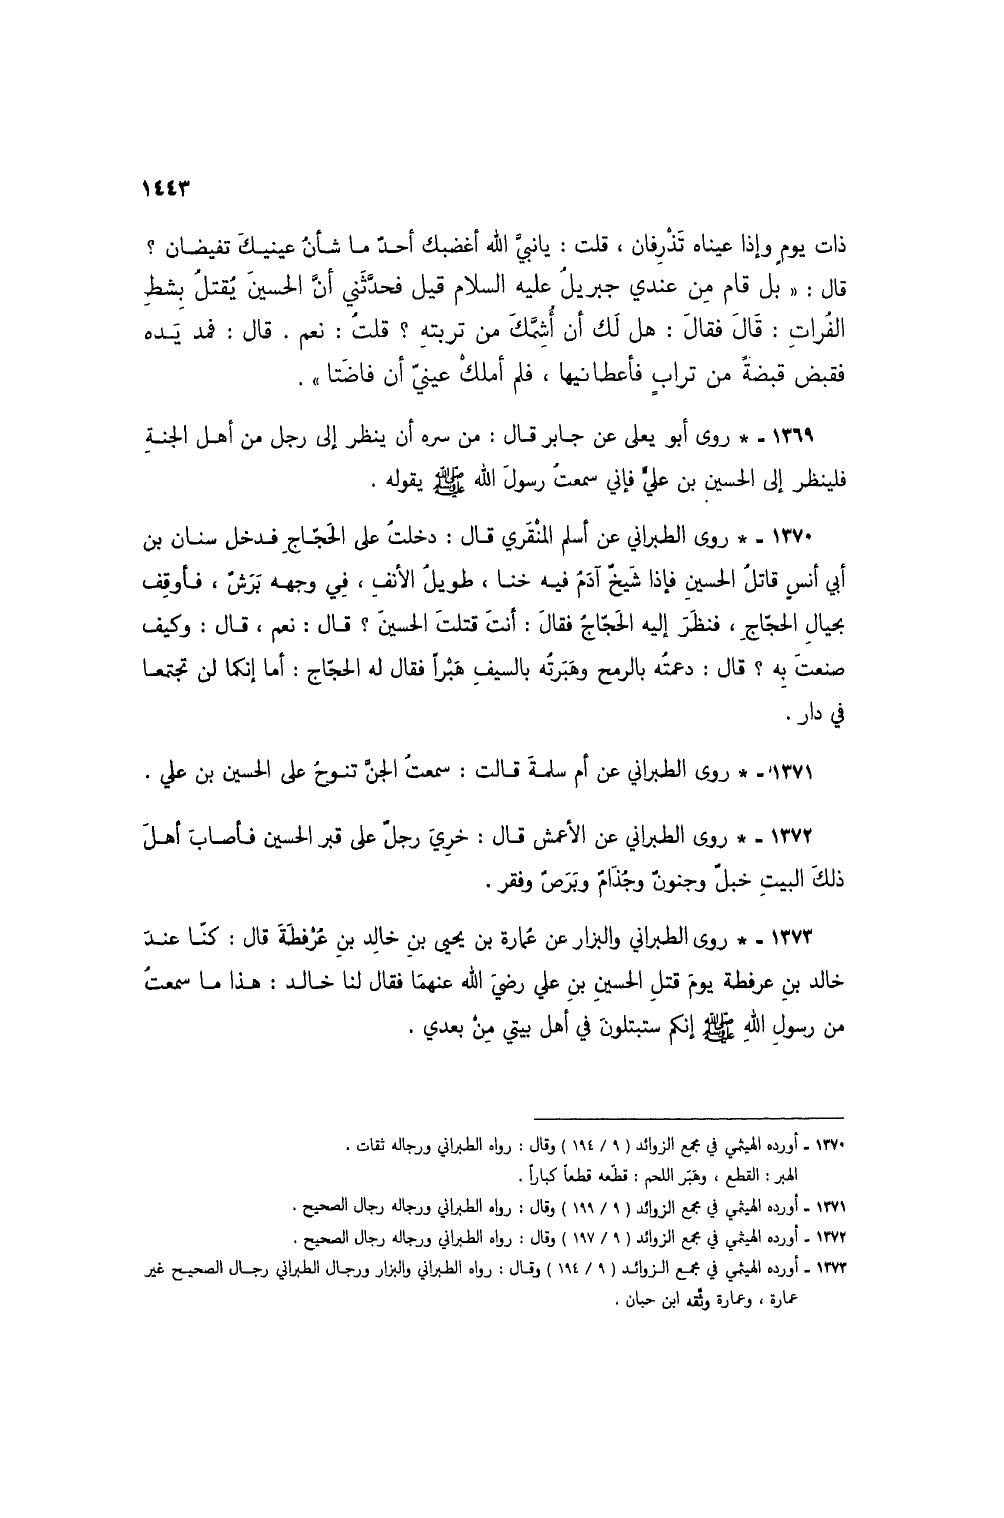 ١٤٤٣
ذات يومٍ وإذا عيناه تَذْرِفان ، قلت : يانبيَّ الله أغضبك أحدٌ ما شأنُ عينيكَ تفيضان ؟
قال : « بل قام مِن عندي جبريلُ عليه السلام قيل فحدَّثَني أنَّ الحسينَ يُقتلُ بِشطِ
الفُراتِ : قَالَ فقالَ : هل لَك أن أُشِمَّكَ من تربتهِ ؟ قلتُ : نعم . قال : فمد يَده
فقبض قبضةً من ترابٍ فأعطانيها ، فلم أملكْ عينيّ أن فاضَتا » .
١٣٦٩ - * روى أبو يعلى عن جابر قال : من سره أن ينظر إلى رجل من أهل الجنةِ
فلينظر إلى الحسينِ بن عليٍّ فإني سمعتُ رسولَ الله ﷺ يقوله .
١٣٧٠ - * روى الطبراني عن أسلم المنْقَري قال : دخلتُ على الحَجّاجِ فدخل سنان بن
أبي أنسٍ قاتلُ الحسينِ فإذا شَيخٌ آدَمُ فيه خنا ، طويلُ الأنفِ ، فِي وجهه بَرَشٌ ، فأوقِف
بحيالِ الحجّاجِ ، فنظَرَ إليه الحَجّاجُ فقالَ : أنتَ قتلتَ الحسينَ ؟ قال : نعم ، قال : وكيف
صنعتَ بِه ؟ قال : دعمتُه بالرمح وهَبَرتُه بالسيفِ هَبْراً فقال له الحجّاج : أما إنكما لن تجتمعا
في دار .
١٣٧١ - * روى الطبراني عن أم سلمةَ قالت : سمعتُ الجنَّ تنوحُ على الحسين بن علي .
١٣٧٢ - * روى الطبراني عن الأعمش قال : خرِيَ رجلٌ على قبر الحسين فأصابَ أهلَ
ذلكَ البيتِ خبلٌ وجنونٌ وجُذَامٌ وبَرَصٌ وفقر .
١٣٧٣ - * روى الطبراني والبزار عن عُمارة بن يحيى بنِ خالِد بنِ عُرْفطَةَ قال : كنّا عندَ
خالد بنِ عرفطة يومَ قتلِ الحسينِ بنِ علي رضيَ الله عنهمَا فقال لنا خالد : هذا ما سمعتُ
من رسولِ اللهِ ﷺ إنكم ستبتلونَ في أهل بيتي مِنْ بعدي .
١٣٧٠ - أورده الهيثمي في مجمع الزوائد ( ٩ / ١٩٤ ) وقال : رواه الطبراني ورجاله ثقات .
الهبر : القطع ، وهَبَر اللحم : قطّعه قطعاً كباراً .
١٣٧١ - أورده الهيثمي في مجمع الزوائد ( ٩ / ١٩٩ ) وقال : رواه الطبراني ورجاله رجال الصحيح .
١٣٧٢ - أورده الهيثمي في مجمع الزوائد ( ٩ / ١٩٧ ) وقال : رواه الطبراني ورجاله رجال الصحيح .
١٣٧٣ - أورده الهيثمي في مجمع الزوائد ( ٩ / ١٩٤ ) وقال : رواه الطبراني والبزار ورجال الطبراني رجال الصحيح غير
عمارة ، وعمارة وثّقه ابن حبان .